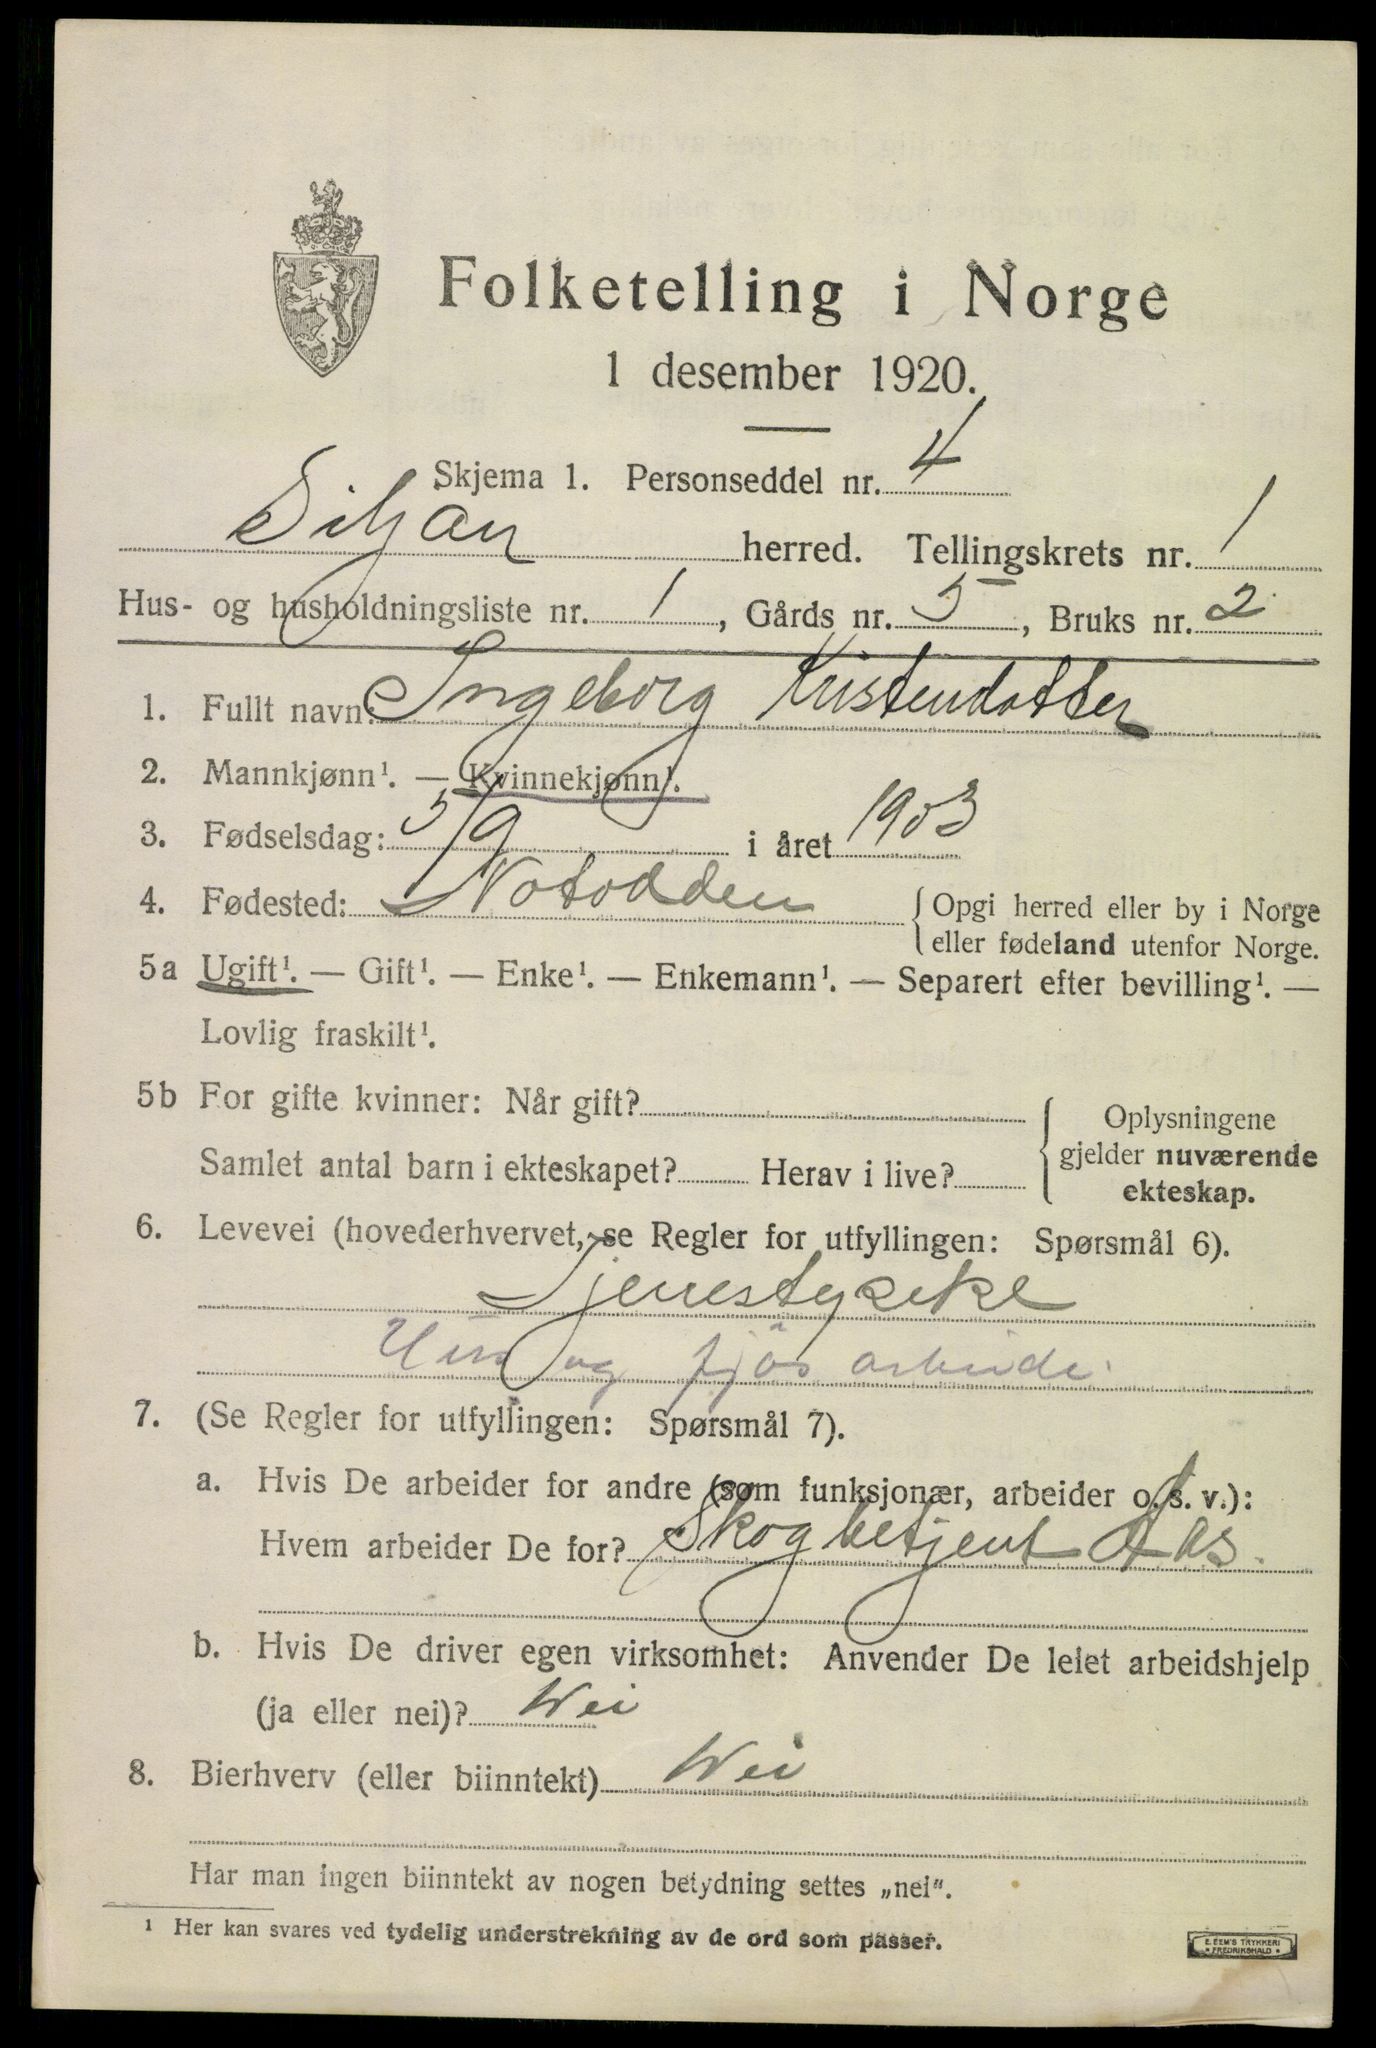 Folketelling i Norge
1 desember 1920.
Skjema 1. Personseddel nr. 4
Siljan herred. Tellingskrets nr. 1
Hus- og husholdningsliste nr. 1, Gårds nr. 5, Bruks nr. 2
1. Fullt navn: Ingeborg Kristendatter
2. Mannkjønn¹. — Kvinnekjønn¹.
3. Fødselsdag: 5/9 i året 1903
4. Fødested: Notodden { Opgi herred eller by i Norge
eller fødeland utenfor Norge.
5a Ugift¹. — Gift¹. — Enke¹. — Enkemann¹. — Separert efter bevilling¹. —
Lovlig fraskilt¹.
5b For gifte kvinner: Når gift?
Samlet antal barn i ekteskapet? Herav i live?
{ Oplysningene
gjelder nuværende
ekteskap.
6. Levevei (hovederhvervet, se Regler for utfyllingen: Spørsmål 6).
Tjenestypike
Hus og fjøs arbeide
7. (Se Regler for utfyllingen: Spørsmål 7).
a. Hvis De arbeider for andre (som funksjonær, arbeider o. s. v.):
Hvem arbeider De for? Skogbetjent Aas.
b. Hvis De driver egen virksomhet: Anvender De leiet arbeidshjelp
(ja eller nei)? Nei
8. Bierhverv (eller biinntekt) Nei
Har man ingen biinntekt av nogen betydning settes „nei".
¹ Her kan svares ved tydelig understrekning av de ord som passer.
E. FEM'S TRYKKERI
• FREDRIKSHALD •